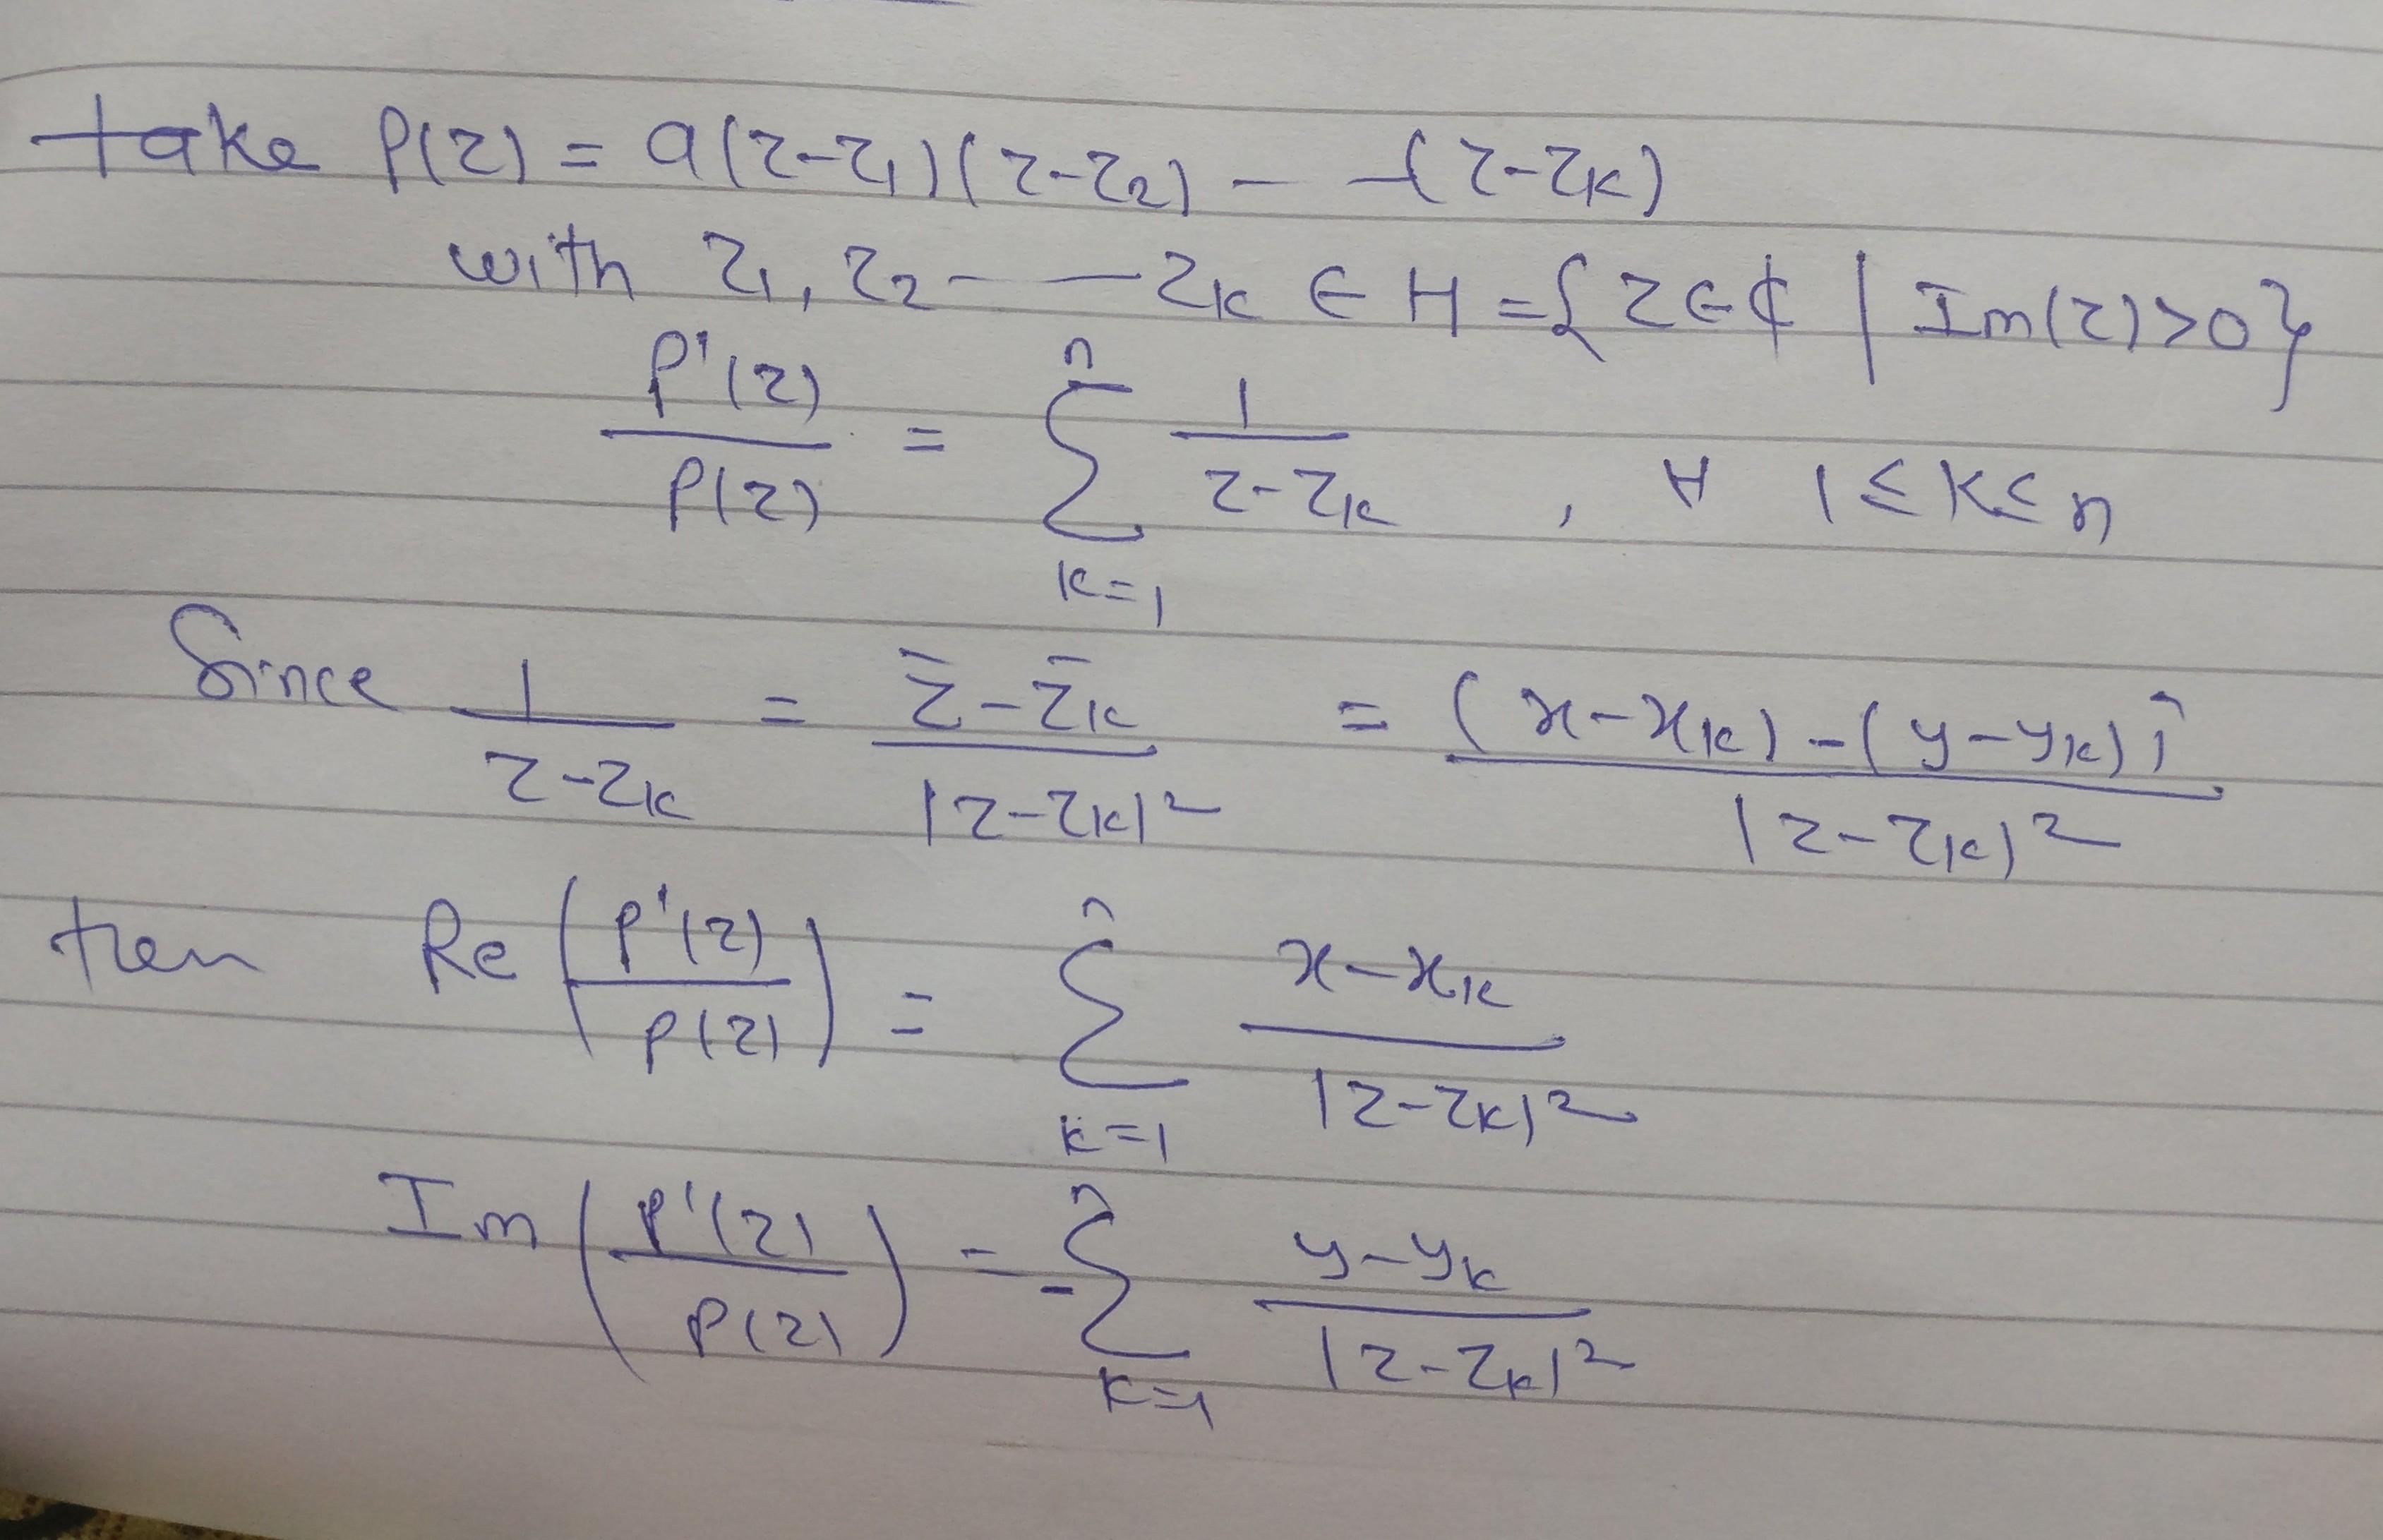 take P(z) = a(z-z₁)(z-z₂) - -(z-zₖ)
with z₁, z₂ - - zₖ ∈ H = {z ∈ ℂ | Im(z) > 0}
P'(z)/P(z) = ∑ₖ₌₁ⁿ 1/(z-zₖ) , ∀ 1 ≤ k ≤ n
Since 1/(z-zₖ) = (z̄-z̄ₖ)/|z-zₖ|² = ((x-xₖ)-(y-yₖ)i)/|z-zₖ|²
then Re(P'(z)/P(z)) = ∑ₖ₌₁ⁿ (x-xₖ)/|z-zₖ|²
Im(P'(z)/P(z)) = -∑ₖ₌₁ⁿ (y-yₖ)/|z-zₖ|²